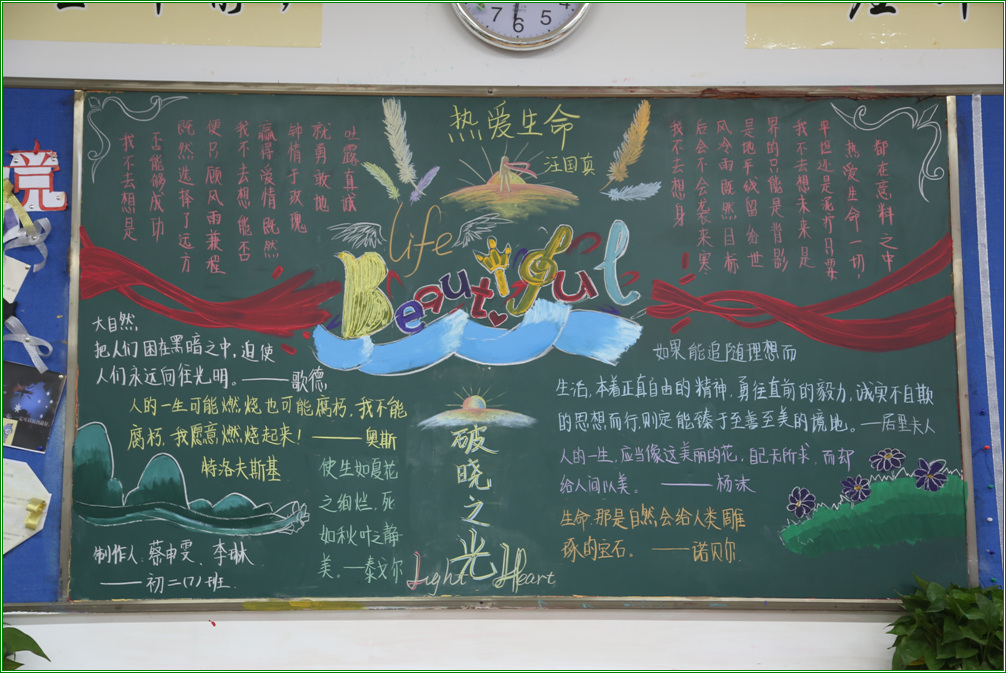 热爱生命
汪国真
我不去想是
否能够成功
既然选择了远方
便只顾风雨兼程
我不去想能否
赢得爱情既然
钟情于玫瑰
就勇敢地
吐露真诚
我不去想身
后会不会袭来寒
风冷雨既然目标
是地平线留给世
界的只能是背影
我不去想未来是
平坦还是泥泞只要
热爱生命一切
都在意料之中
life
Beautiful
大自然,
把人们困在黑暗之中,迫使
人们永远向往光明。——歌德
人的一生可能燃烧也可能腐朽,我不能
腐朽,我愿意燃烧起来!——奥斯
特洛夫斯基
使生如夏花
之绚烂,死
如秋叶之静
美。—泰戈尔
制作人:蔡申雯、李琳
——初二(7)班
破晓之光
Light Heart
如果能追随理想而
生活,本着正真自由的精神,勇往直前的毅力,诚实不自欺
的思想而行,则定能臻于至善至美的境地。—居里夫人
人的一生,应当像这美丽的花,自己无所求,而却
给人间以美。——杨沫
生命,那是自然会给人类雕
琢的宝石。——诺贝尔
7 6 5 4